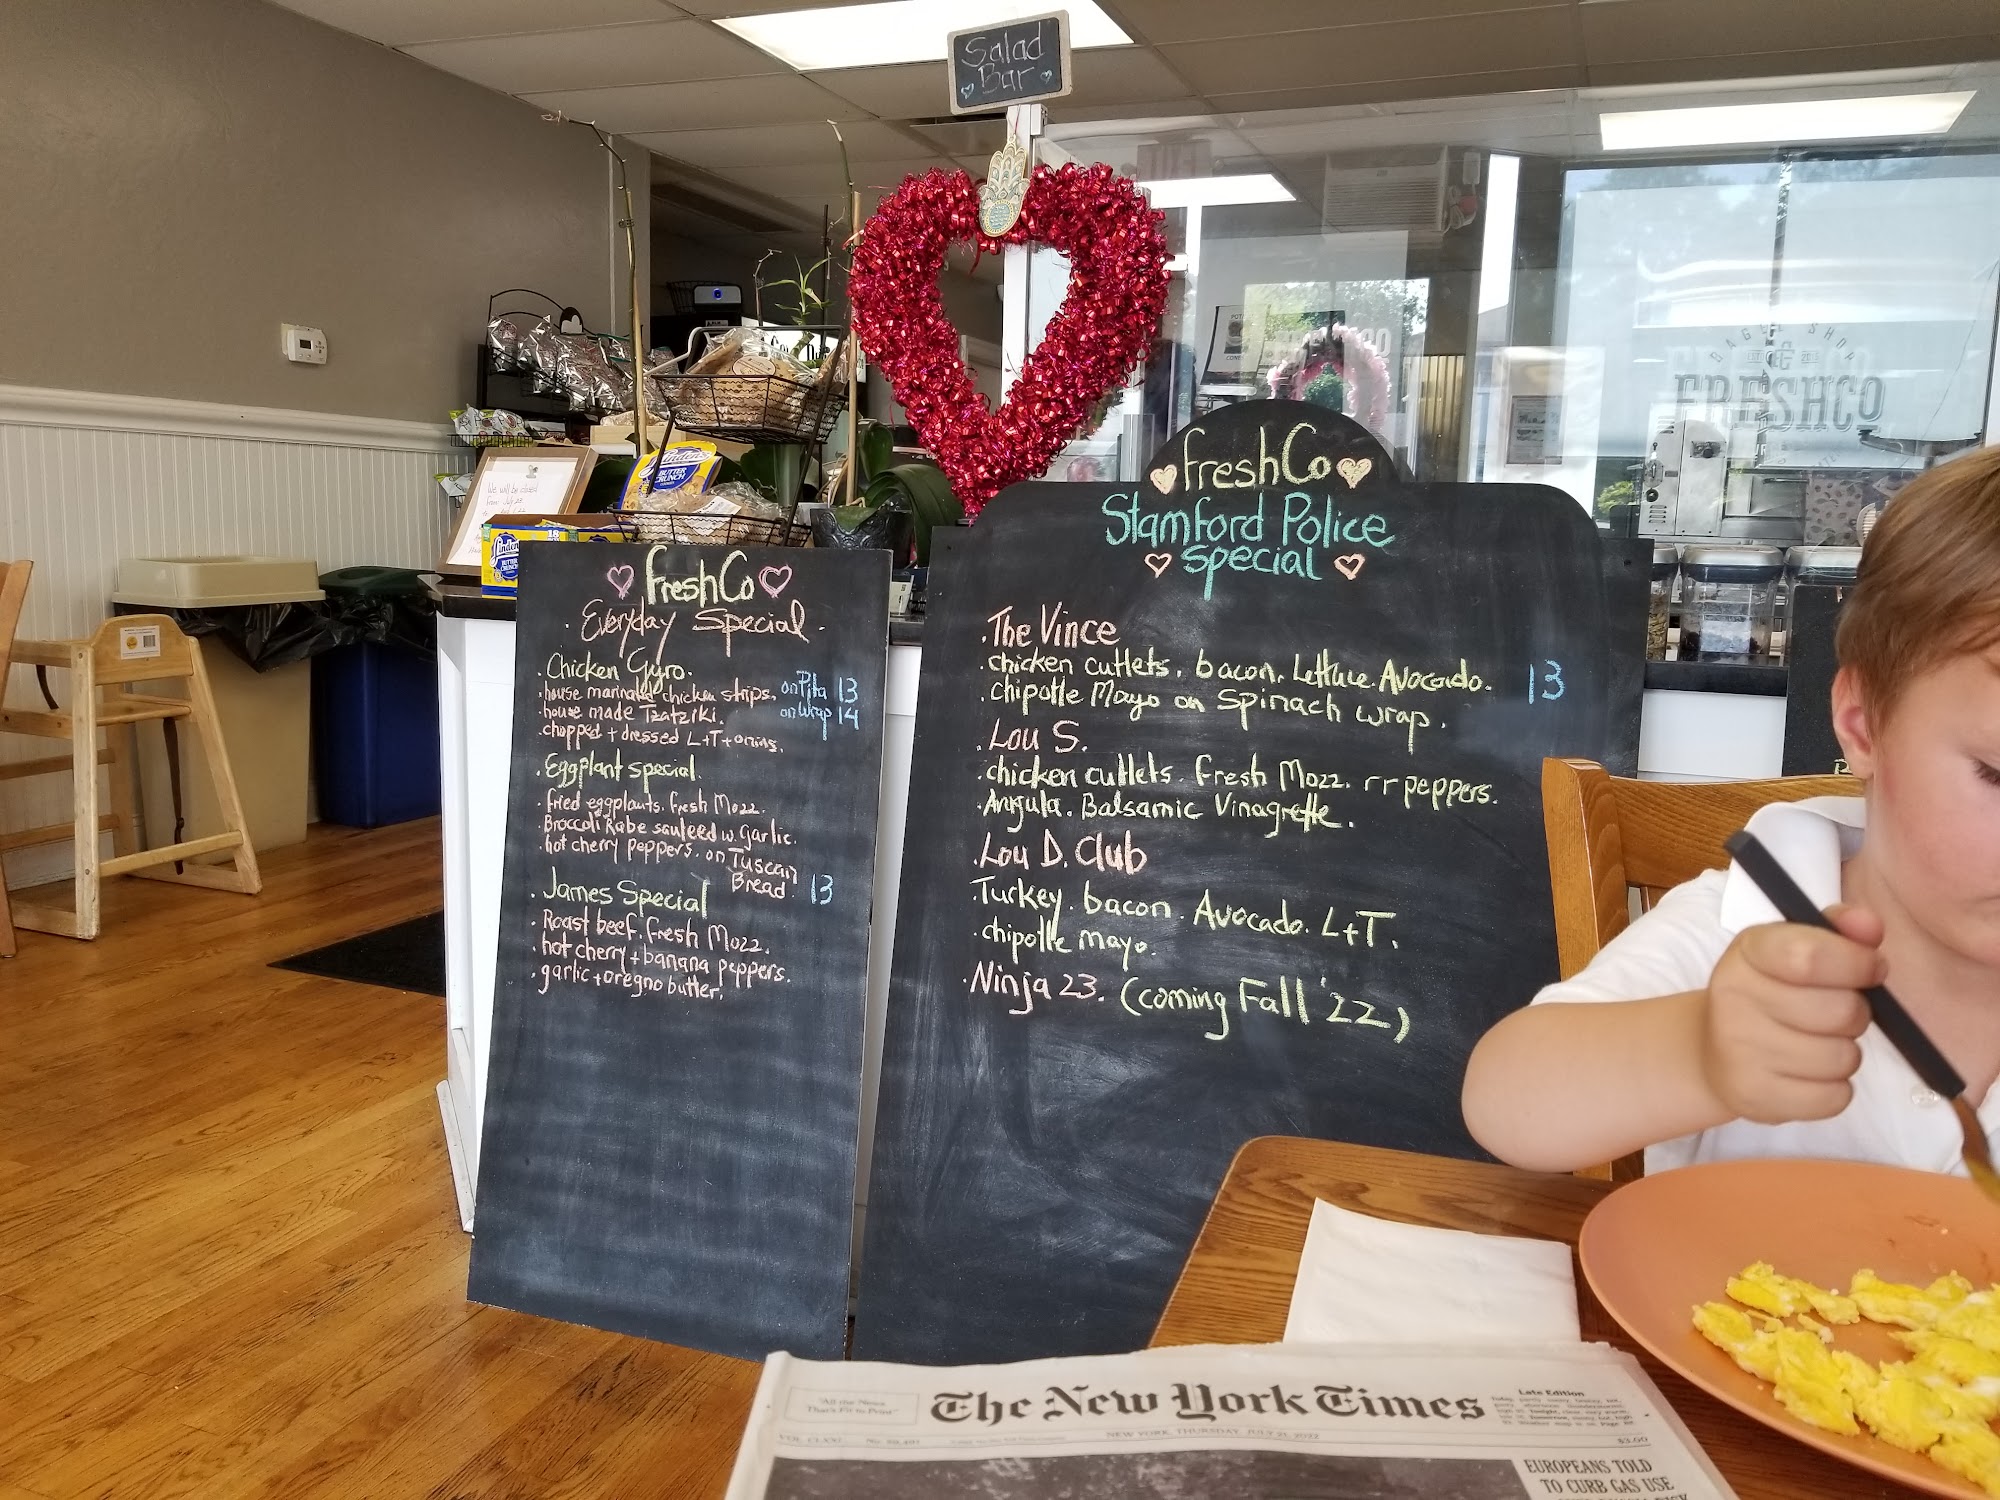 Salad
Bar
freshCo
Everyday Special
Chicken Gyro.
house marinated chicken strips.
house made Tzatziki.
chopped + dressed L+T+onins.
on Pita 13
on Wrap 14
Eggplant special.
fried eggplants. fresh Mozz.
Broccoli Rabe sauteed w. garlic.
hot cherry peppers. on Tuscan
Bread. 13
James Special
Roast beef. fresh Mozz.
hot cherry + banana peppers.
garlic + oregno butter.
freshCo
Stamford Police
special
The Vince
chicken cutlets. bacon. Lettuce. Avocado. 13
chipotle Mayo on Spinach wrap.
Lou S.
chicken cutlets. fresh Mozz. rr peppers.
Arugula. Balsamic Vinagrette.
Lou D. Club
Turkey. bacon. Avocado. L+T.
chipotle mayo.
Ninja 23. (coming Fall '22)
BAGEL SHOP
FRESHCO
We will be closed
from July 23
Lindens
BUTTER
CRUNCH
18
Lindens
BUTTER
CRUNCH
"All the News
That's Fit to Print"
The New York Times
Late Edition
NEW YORK, THURSDAY, JULY 21, 2022
$3.00
EUROPEANS TOLD
TO CURB GAS USE